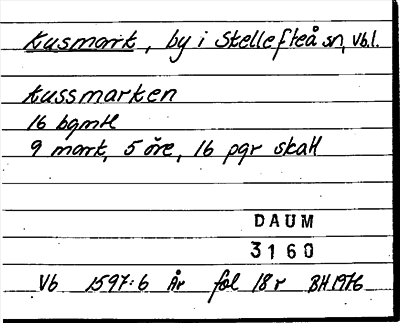 Kusmark, by i Skellefteå sn, Vb.l.
Kussmarken
16 bgmtl
9 mark, 5 öre, 16 pgr skatt
DAUM
3160
Vb 1597:6 År fol 18r BH 1976